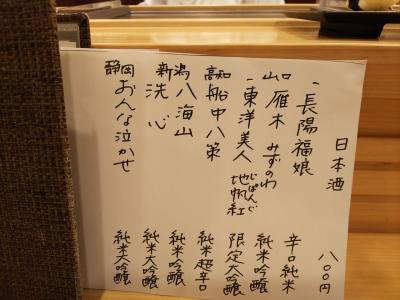 日本酒 八〇〇円
山口
・長陽福娘 辛口純米
・雁木 みずのわ 純米吟醸
・東洋美人 地帆紅 じぱんぐ 限定大吟醸
高知
船中八策 純米超辛口
新潟
八海山 純米吟醸
洗心 純米大吟醸
静岡
おんな泣かせ 純米大吟醸